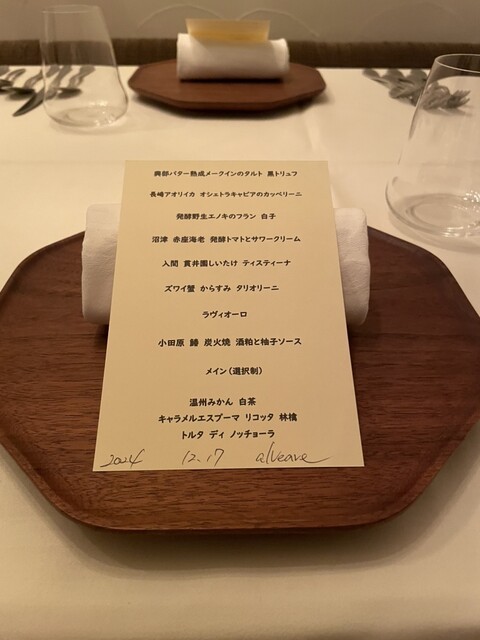 興部バター熟成メークインのタルト 黒トリュフ
長崎アオリイカ オシェトラキャビアのカッペリーニ
発酵野生エノキのフラン 白子
沼津 赤座海老 発酵トマトとサワークリーム
人間 貫井園しいたけ ティスティーナ
ズワイ蟹 からすみ タリオリーニ
ラヴィオーロ
小田原 鰆 炭火焼 酒粕と柚子ソース
メイン(選択制)
温州みかん 白茶
キャラメルエスプーマ リコッタ 林檎
トルタ ディ ノッチョーラ
2024 12.17 alveare